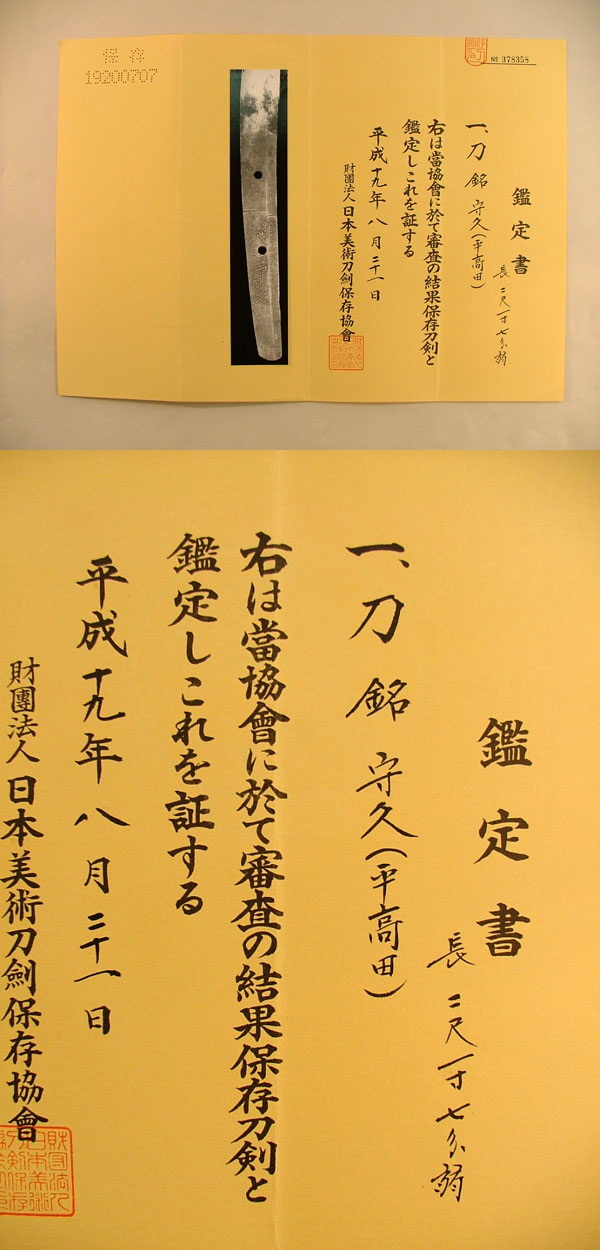 保存
19200707
№ 378358
鑑定書
一、刀 銘 守久(平高田)
長二尺一寸七分弱
右は當協會に於て審査の結果保存刀剣と
鑑定しこれを証する
平成十九年八月二十一日
財團法人日本美術刀劍保存協會
鑑定書
一、刀 銘 守久(平高田)
長二尺一寸七分弱
右は當協會に於て審査の結果保存刀剣と
鑑定しこれを証する
平成十九年八月二十一日
財團法人日本美術刀劍保存協會